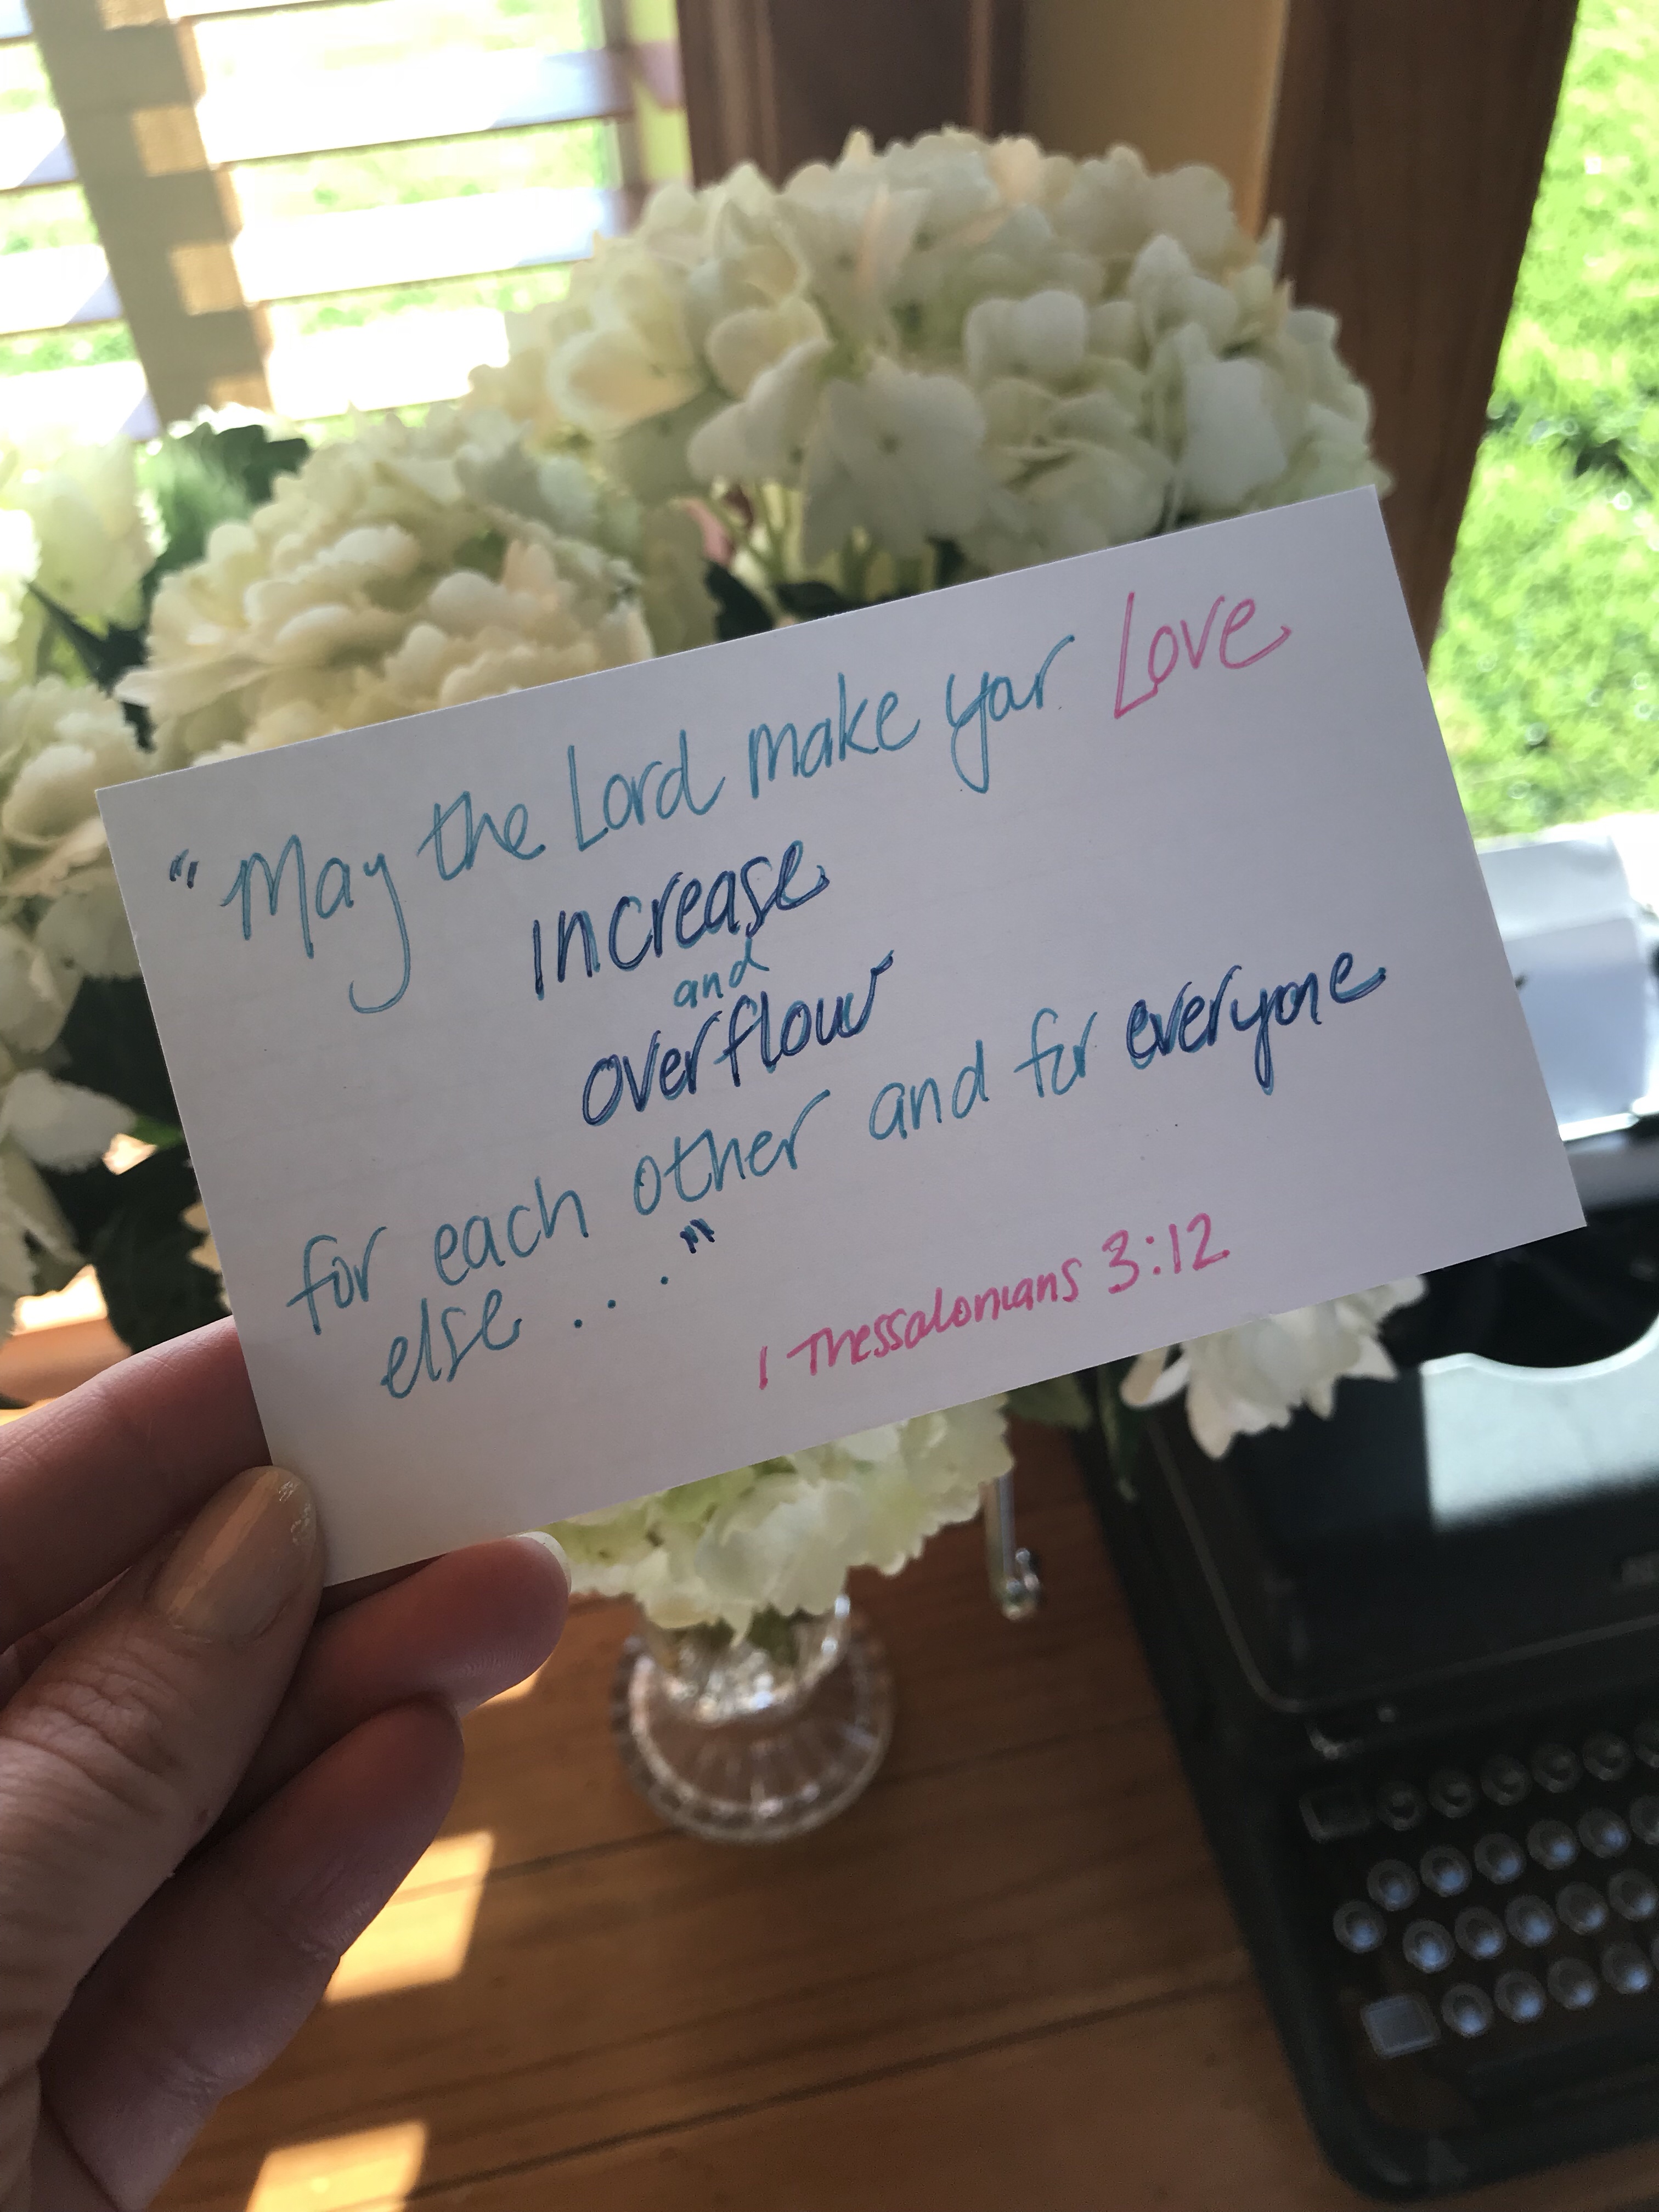 "May the Lord make your Love
increase
and
overflow
for each other and for everyone
else . . ."
1 Thessalonians 3:12